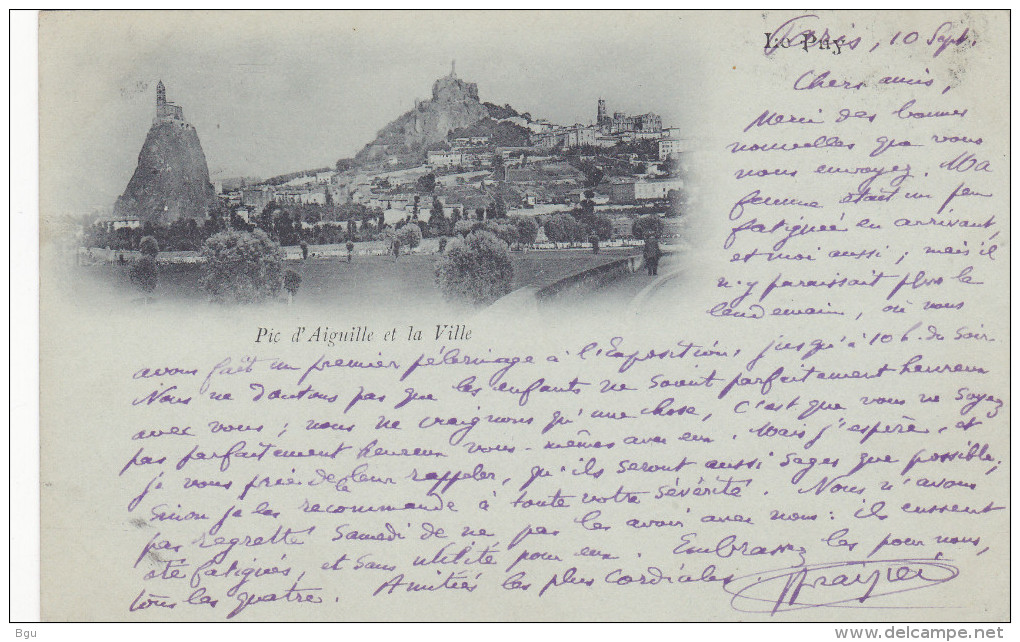 Le Puy
Paris, 10 Sept.
Chers amis,
Merci des bonnes
nouvelles que vous
nous envoyez. Ma
femme était un peu
fatiguée en arrivant,
et moi aussi ; mais il
n'y paraissait plus le
lendemain, où nous
Pic d'Aiguille et la Ville
avons fait un premier pélerinage à l'Exposition, jusqu'à 10 h. du soir.
Nous ne doutons pas que les enfants ne soient parfaitement heureux
avec vous ; nous ne craignons qu'une chose, c'est que vous ne soyez
pas parfaitement heureux vous-mêmes avec eux. Mais j'espère, et
je vous prie de le leur rappeler, qu'ils seront aussi sages que possible,
sinon je les recommande à toute votre sévérité. Nous n'avons
pas regretté samedi de ne pas les avoir avec nous : ils eussent
été fatigués, et sans utilité pour eux. Embrassez les pour nous,
tous les quatre. Amitiés les plus cordiales.
Bgu
www.delcampe.net